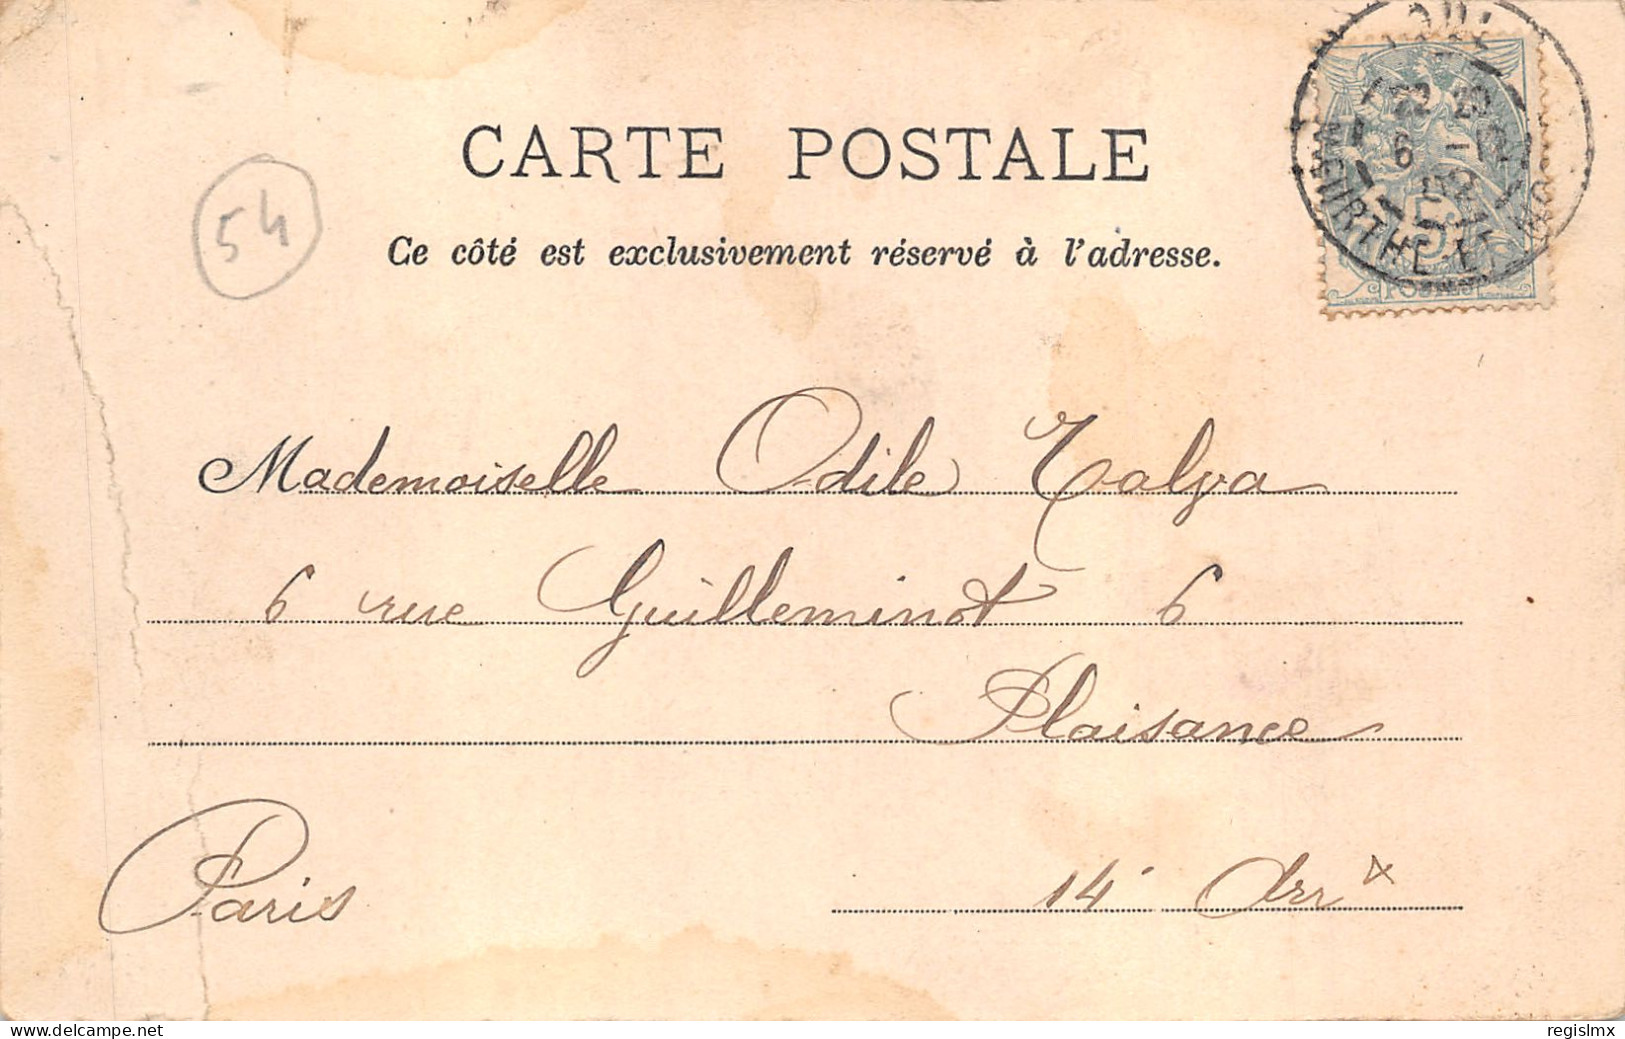 CARTE POSTALE
54
Ce côté est exclusivement réservé à l'adresse.
22 20
6 -
MEURTHE ET MO
5
POSTES
Mademoiselle Odile Talga
6 rue Guilleminot 6
Plaisance
Paris 14 Arr
regislmx
delcampe.net